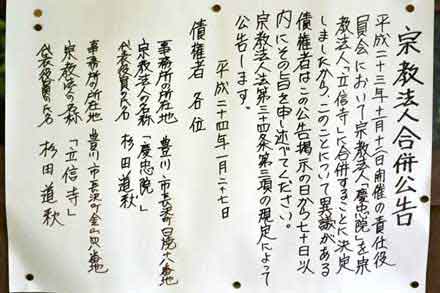 宗教法人合併公告
平成二十三年十月十二日開催の責任役
員会において宗教法人「慶忠院」を宗
教法人「立信寺」に合併することに決定
しましたから、このことについて異議がある
債権者はこの公告掲示の日から七十日以
内にその旨を申し述べてください。
宗教法人法第三十四条第三項の規定によって
公告します。
平成二十四年一月二十七日
債権者 各位
事務所の所在地 豊川市長沢町
宗教法人の名称 「慶忠院」
代表役員の氏名 杉田道秋
事務所の所在地 豊川市長沢町
宗教法人の名称 「立信寺」
代表役員の氏名 杉田道秋